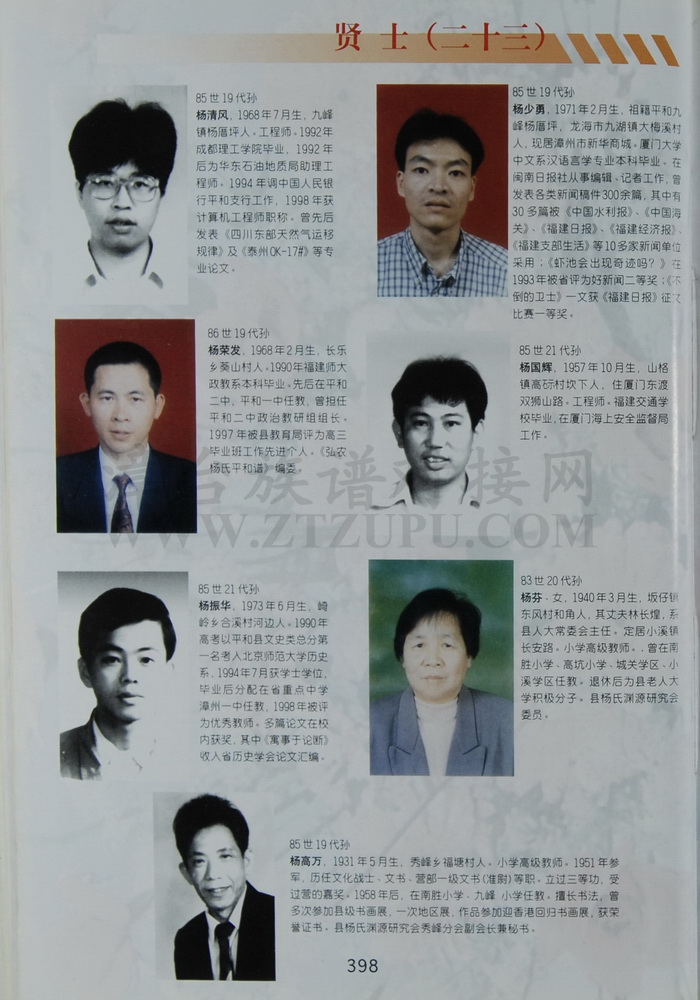 贤 士（二十三）
85世19代孙
杨清风，1968年7月生，九峰
镇杨厝坪人。工程师。1992年
成都理工学院毕业，1992年
后为华东石油地质局助理工
程师。1994年调中国人民银
行平和支行工作，1998年获
计算机工程师职称。曾先后
发表《四川东部天然气运移
规律》及《泰州OK-17#》等专
业论文。
85世19代孙
杨少勇，1971年2月生，祖籍平和九
峰杨厝坪，龙海市九湖镇大梅溪村
人，现居漳州市新华商城。厦门大学
中文系汉语言学专业本科毕业。在
闽南日报社从事编辑、记者工作，曾
发表各类新闻稿件300余篇，其中有
30多篇被《中国水利报》、《中国海
关》、《福建日报》、《福建经济报》、
《福建支部生活》等10多家新闻单位
采用；《虾池会出现奇迹吗？》在
1993年被省评为好新闻二等奖；《不
倒的卫士》一文获《福建日报》征文
比赛一等奖。
86世19代孙
杨荣发，1968年2月生，长乐
乡葵山村人。1990年福建师大
政教系本科毕业。先后在平和
二中，平和一中任教，曾担任
平和二中政治教研组组长。
1997年被县教育局评为高三
毕业班工作先进个人。《弘农
杨氏平和谱》编委。
85世21代孙
杨国辉，1957年10月生，山格
镇高砀村坎下人，住厦门东渡
双狮山路。工程师。福建交通学
校毕业，在厦门海上安全监督局
工作。
台族谱对接网
WWW.ZTZUPU.COM
85世21代孙
杨振华，1973年6月生，崎
岭乡合溪村河边人。1990年
高考以平和县文史类总分第
一名考入北京师范大学历史
系，1994年7月获学士学位，
毕业后分配在省重点中学
漳州一中任教，1998年被评
为优秀教师。多篇论文在校
内获奖，其中《寓事于论断》
收入省历史学会论文汇编。
83世20代孙
杨芬，女，1940年3月生，坂仔镇
东风村和角人，其丈夫林长煌，系
县人大常委会主任。定居小溪镇
长安路。小学高级教师。曾在南
胜小学、高坑小学、城关学区、小
溪学区任教。退休后为县老人大
学积极分子。县杨氏渊源研究会
委员。
85世19代孙
杨高万，1931年5月生，秀峰乡福塘村人。小学高级教师。1951年参
军，历任文化战士、文书、营部一级文书（准尉）等职。立过三等功，受
过营的嘉奖。1958年后，在南胜小学、九峰 小学任教。擅长书法，曾
多次参加县级书画展，一次地区展，作品参加迎香港回归书画展，获荣
誉证书。县杨氏渊源研究会秀峰分会副会长兼秘书。
398